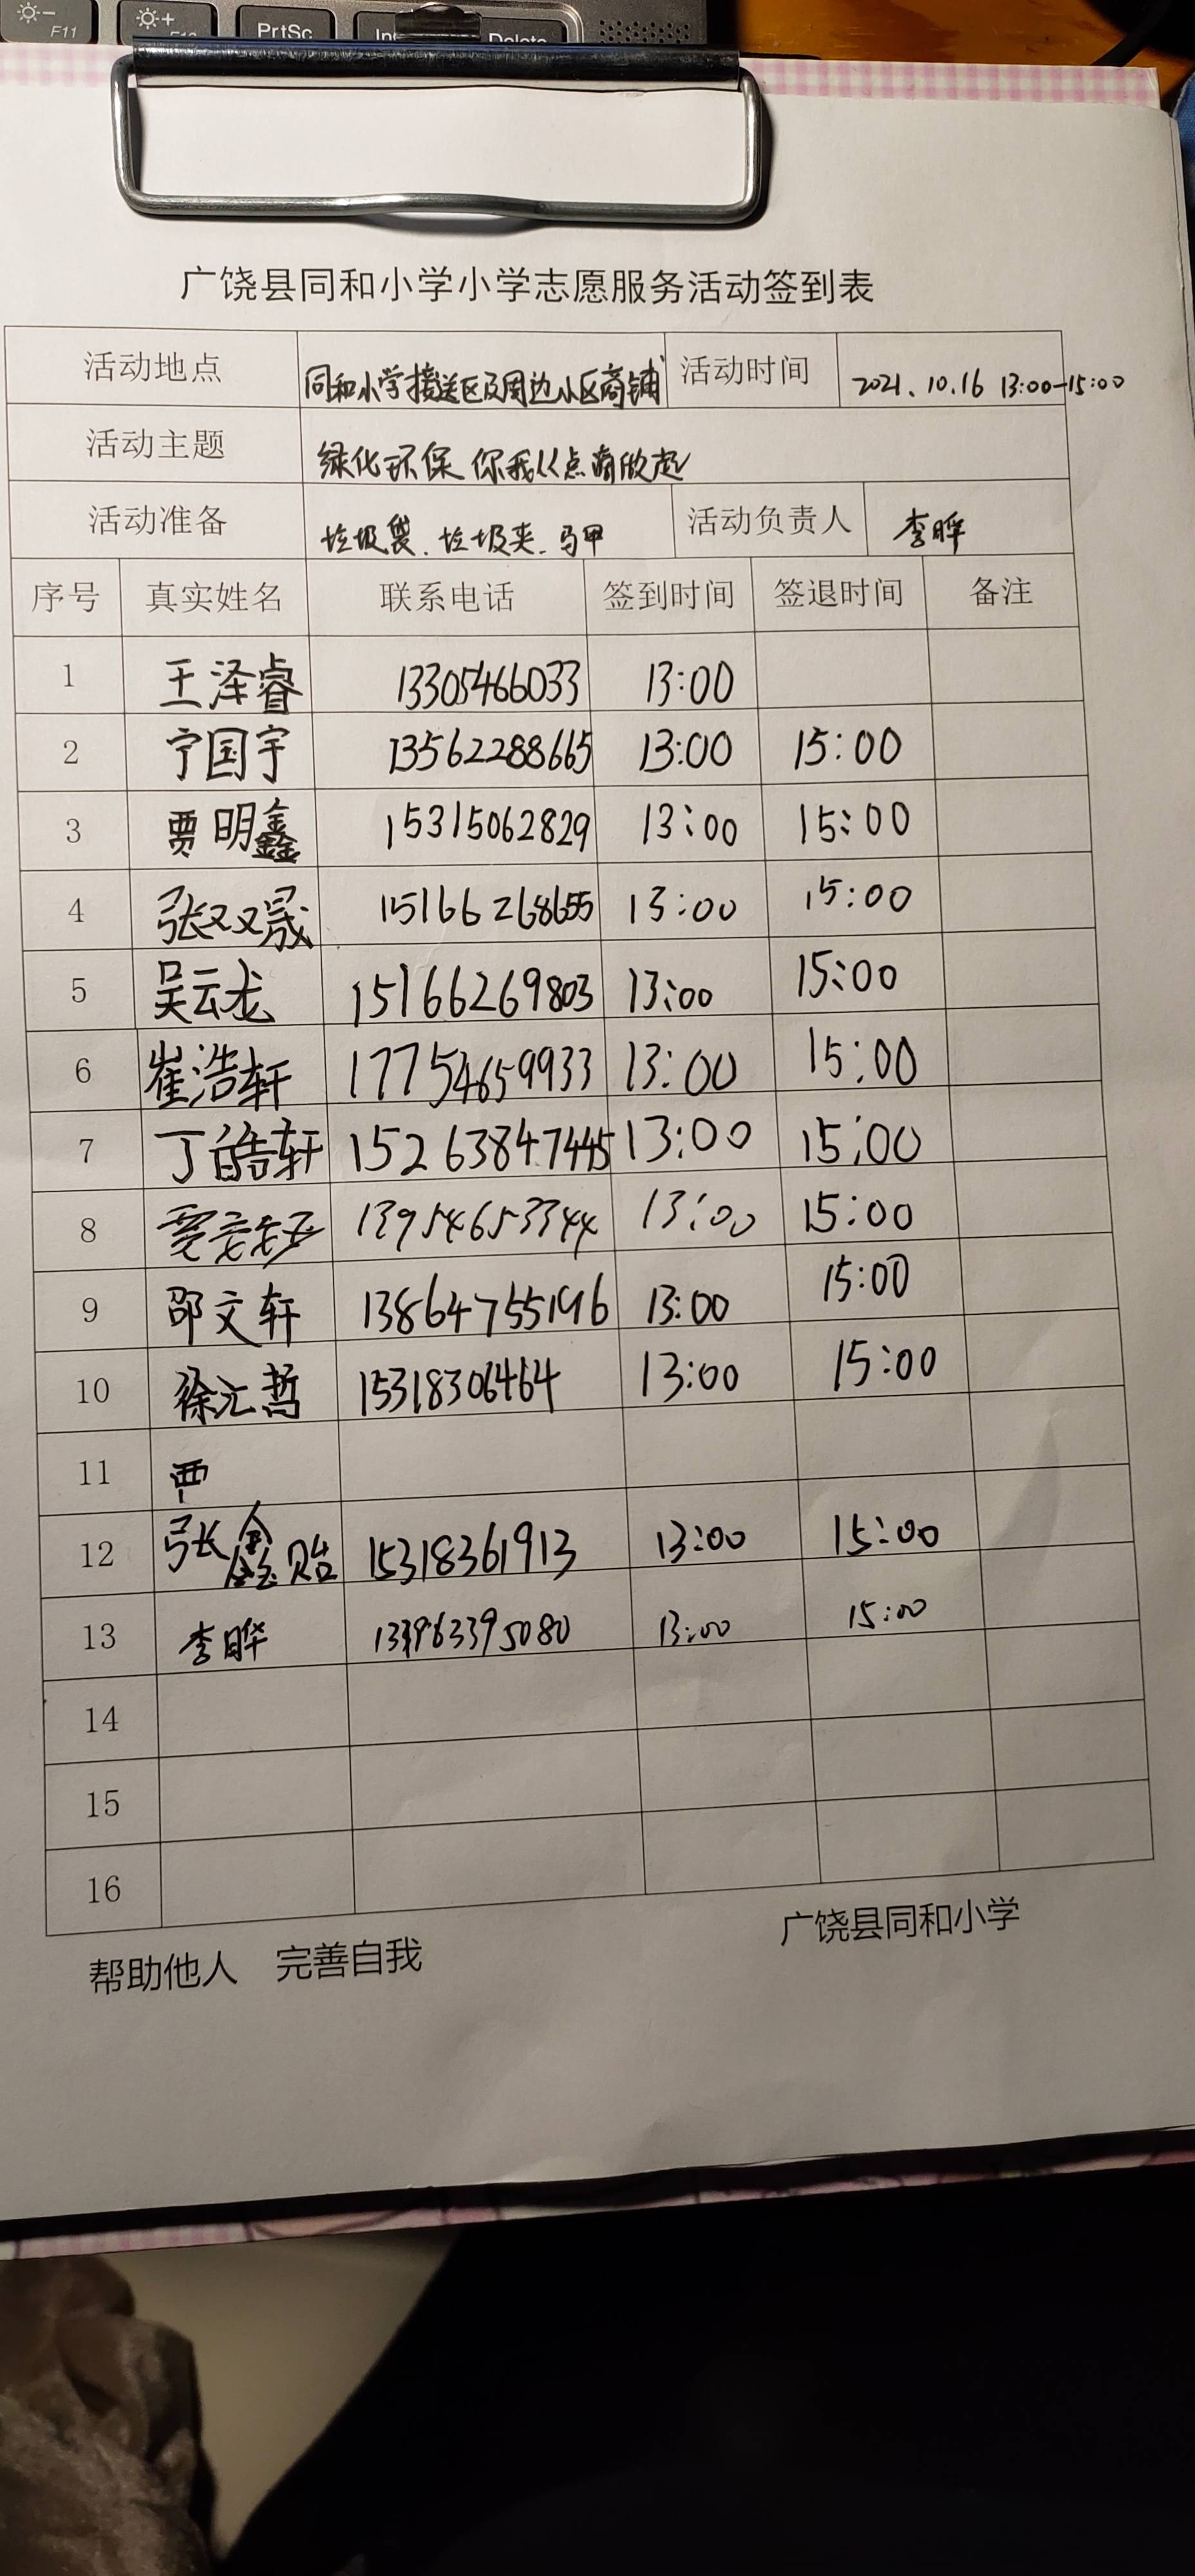 F11
PrtSc
Delete
广饶县同和小学小学志愿服务活动签到表
活动地点 同和小学接送区及周边小区商铺 活动时间 2021.10.16 13:00-15:00
活动主题 绿化环保 你我从点滴做起
活动准备 垃圾袋、垃圾夹、马甲 活动负责人 李晔
序号 真实姓名 联系电话 签到时间 签退时间 备注
1 王泽睿 13305466033 13:00
2 宁国宇 13562288665 13:00 15:00
3 贾明鑫 15315062829 13:00 15:00
4 张双晟 15166268655 13:00 15:00
5 吴云龙 15166269803 13:00 15:00
6 崔浩轩 17754659933 13:00 15:00
7 丁皓轩 15263847445 13:00 15:00
8 13954653344 13:00 15:00
9 邵文轩 13864755196 13:00 15:00
10 徐汇哲 15318306464 13:00 15:00
11
12 张鑫贻 15318361913 13:00 15:00
13 李晔 13:00 15:00
14
15
16
帮助他人 完善自我 广饶县同和小学